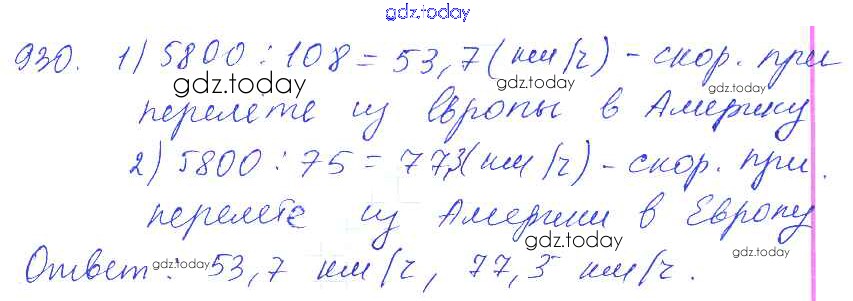 gdz.today
930. 1) 5800 : 108 = 53,7 (км/ч) - скор. при
gdz.today gdz.today gdz.today
перелете из Европы в Америку
gdz.today
2) 5800 : 75 = 77,3 (км/ч) - скор. при
перелете из Америки в Европу
gdz.today
Ответ: 53,7 км/ч, 77,3 км/ч.
gdz.today gdz.today